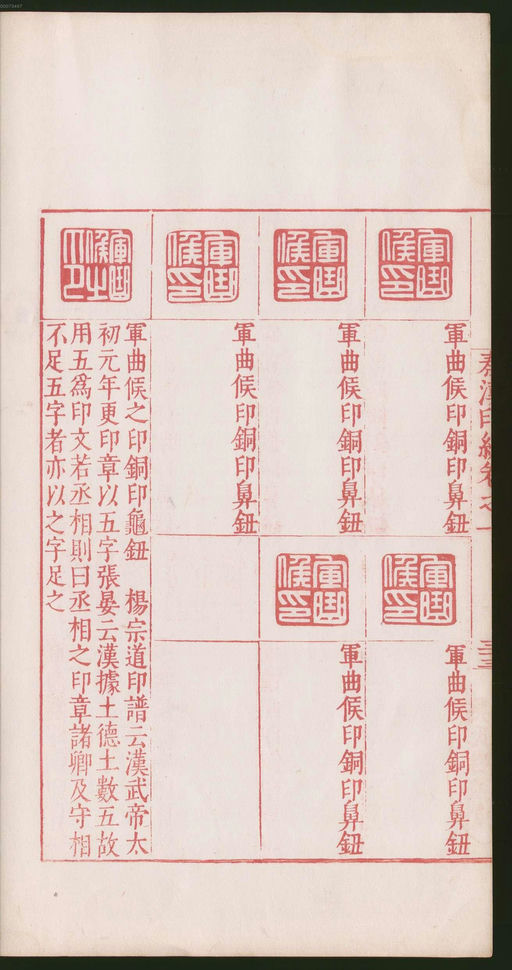 00073467
秦漢印統卷之一
三三
軍曲候印
軍曲候印銅印鼻鈕
軍曲候印
軍曲候印銅印鼻鈕
軍曲候印
軍曲候印銅印鼻鈕
軍曲候印
軍曲候印銅印鼻鈕
軍曲候印
軍曲候印銅印鼻鈕
軍曲候之印
軍曲候之印銅印龜鈕　楊宗道印譜云漢武帝太
初元年更印章以五字張晏云漢據土德土數五故
用五爲印文若丞相則曰丞相之印章諸卿及守相
不足五字者亦以之字足之